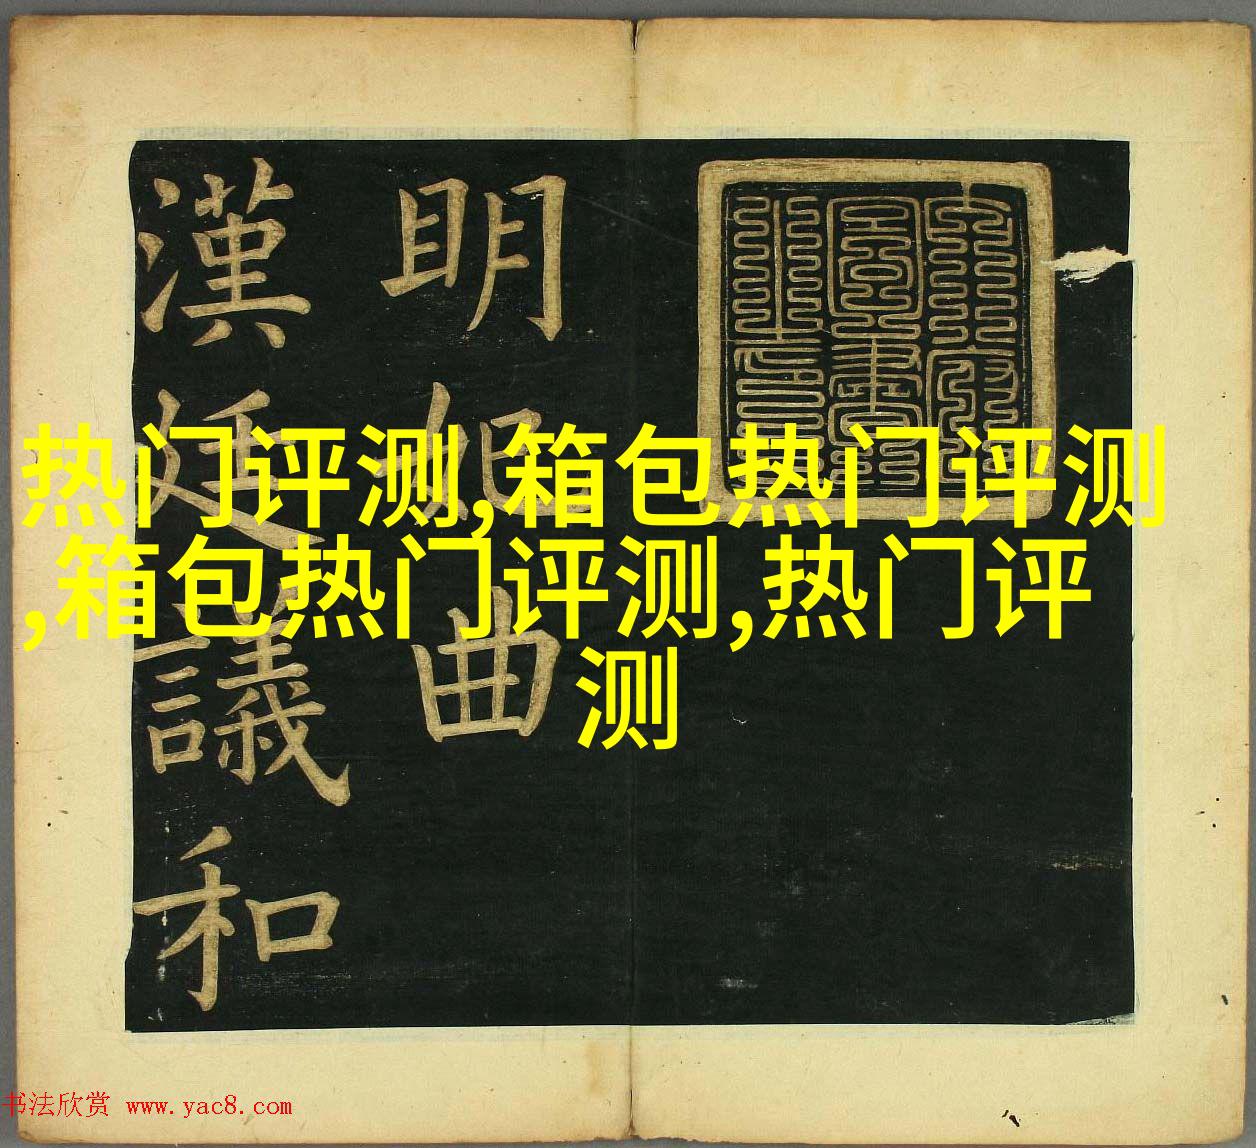 明妃曲
漢廷議和
热门评测,箱包热门评测
,箱包热门评测,热门评
测
书法欣赏 www.yac8.com